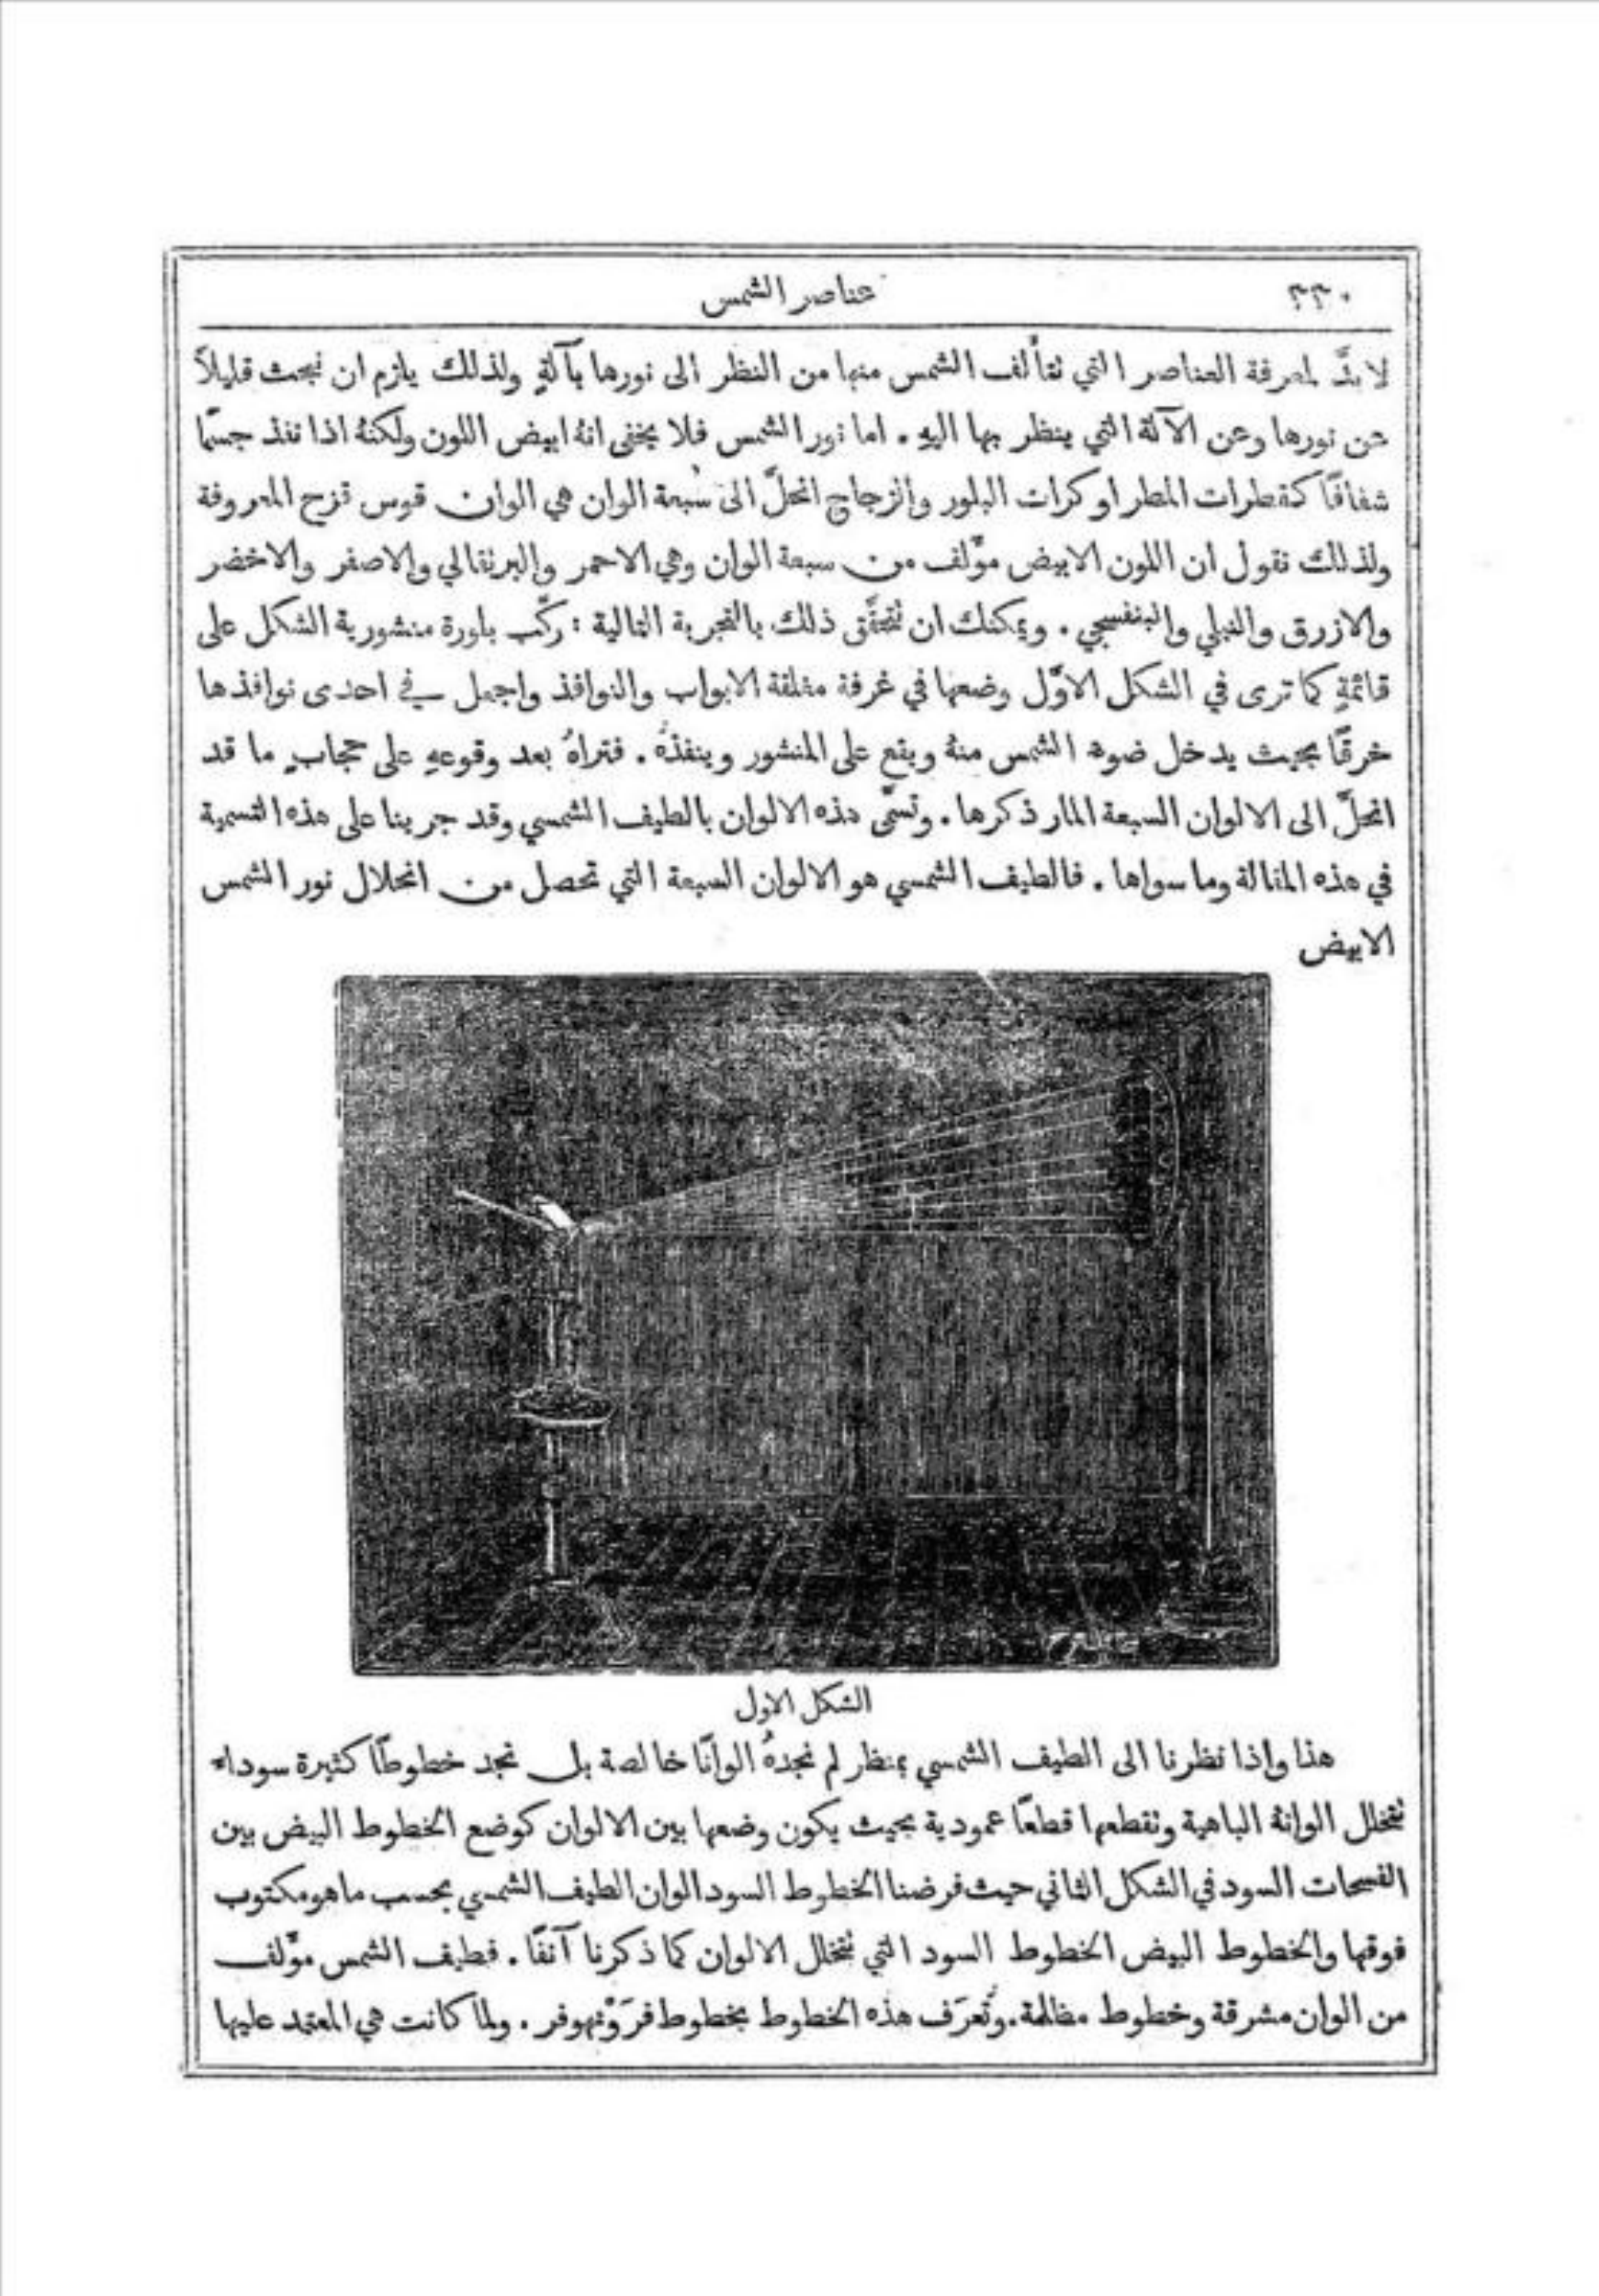 ٢٢٠ عناصر الشمس
لا بدَّ لمعرفة العناصر التي نتأَلف الشمس منها من النظر الى نورها بآلةٍ ولذلك يلزم ان نبحث قليلاً
عن نورها وعن الآلة التي ينظر بها اليهِ . اما نور الشمس فلا يخفى انهُ ابيض اللون ولكنهُ اذا نفذ جسمًا
شفافًا كقطرات المطر او كرات البلور والزجاج انحلَّ الى سبعة الوان هي الوان قوس قزح المعروفة
ولذلك نقول ان اللون الابيض موَّلف من سبعة الوان وهي الاحمر والبرتقالي والاصفر والاخضر
والازرق والنيلي والبنفسجي . ويمكنك ان نتحقَّق ذلك بالتجربة التالية : ركّب بلورة منشورية الشكل على
قائمةٍ كما ترى في الشكل الاوَّل وضعها في غرفة مغلقة الابواب والنوافذ واجعل في احدى نوافذها
خرقًا بحيث يدخل ضوء الشمس منهُ ويقع على المنشور وينفذهُ . فتراهُ بعد وقوعهِ على حجابٍ ما قد
انحلَّ الى الالوان السبعة المار ذكرها . وتسمَّى هذه الالوان بالطيف الشمسي وقد جرينا على هذه التسمية
في هذه المقالة وما سواها . فالطيف الشمسي هو الالوان السبعة التي تحصل من انحلال نور الشمس
الابيض
الشكل الاول
هذا واذا نظرنا الى الطيف الشمسي بمنظر لم نجدهُ الوانًا خالصة بل نجد خطوطًا كثيرة سوداء
نتخلل الوانهُ الباهية ونقطعها قطعًا عمودية بحيث يكون وضعها بين الالوان كوضع الخطوط البيض بين
الفسحات السود في الشكل الثاني حيث فرضنا الخطوط السود الوان الطيف الشمسي بحسب ما هو مكتوب
فوقها والخطوط البيض الخطوط السود التي نتخلل الالوان كما ذكرنا آنفًا . فطيف الشمس موَّلف
من الوان مشرقة وخطوط مظلمة . وتُعرَف هذه الخطوط بخطوط فرَوْنهوفر . ولما كانت هي المعتمد عليها